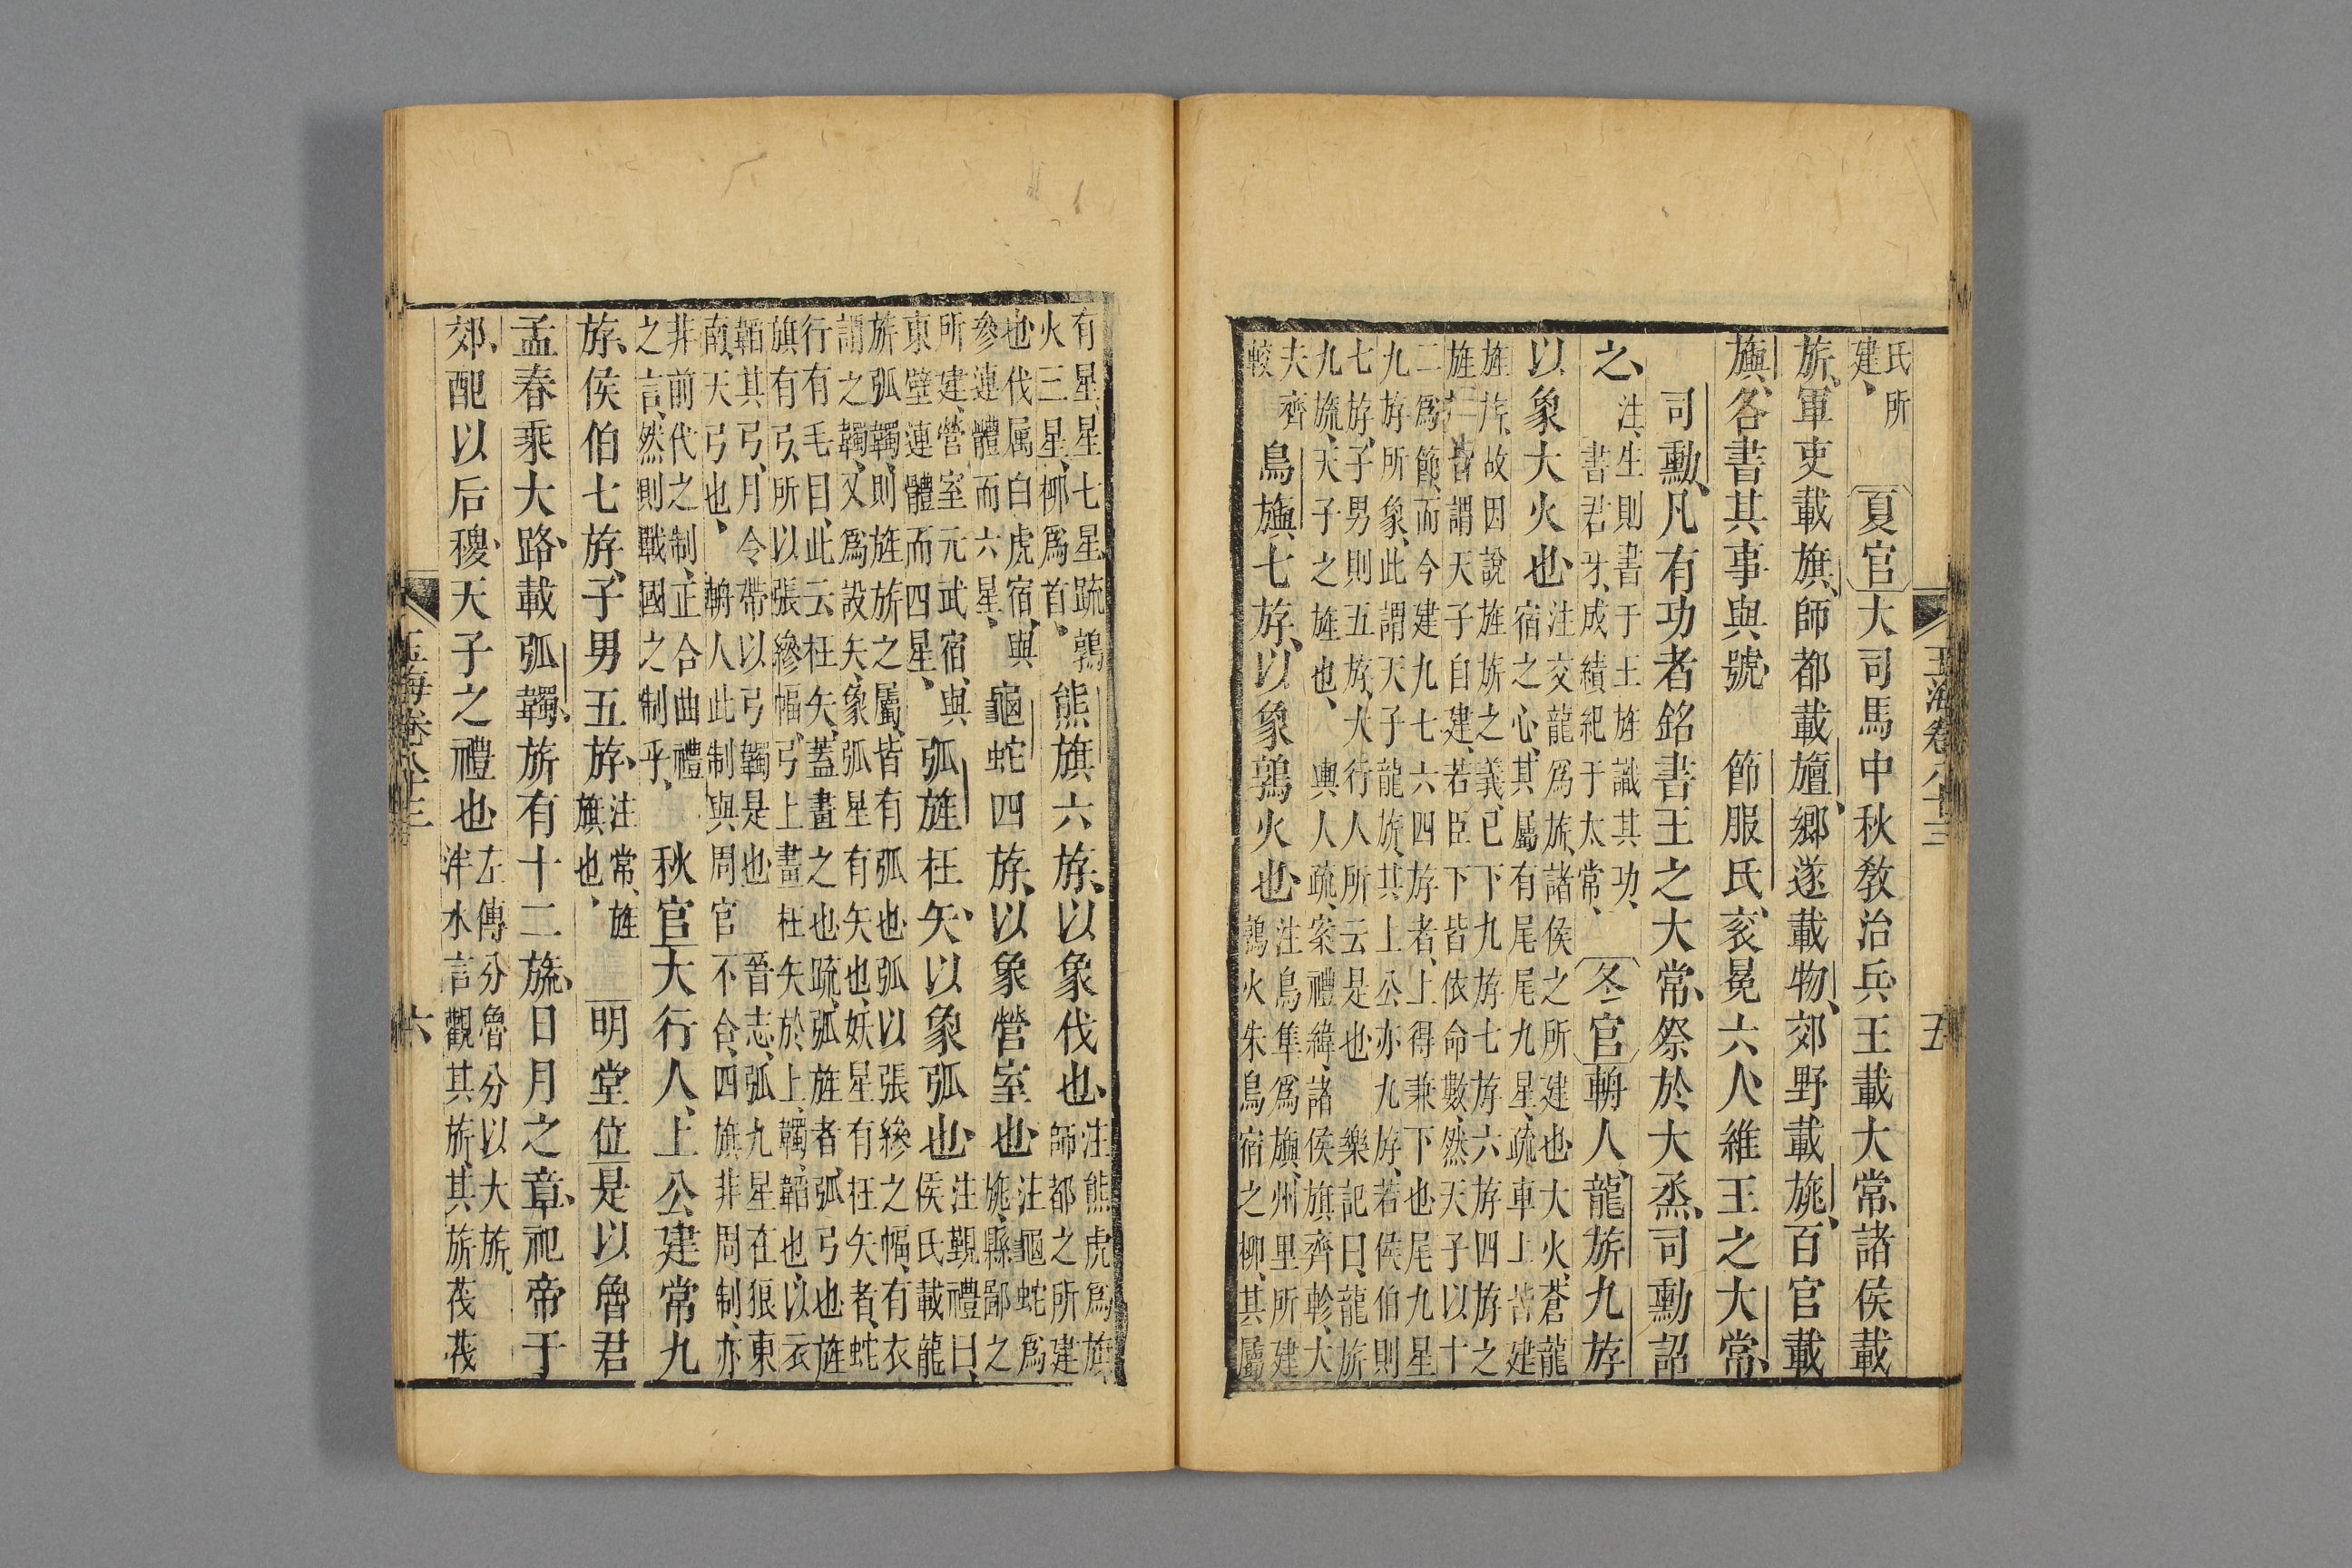 玉海卷八十三　五
氏所
建、
夏官大司馬中秋教治兵王載大常、諸侯載
旂、軍吏載旗、師都載旜、鄉遂載物、郊野載旐、百官載
旟、各書其事與號　節服氏、衮冕六人維王之大常、
司勳、凡有功者銘書王之大常、祭於大烝、司勳詔
之、
注、生則書于王旌識其功、
書君牙、成績紀于太常、
冬官輈人、龍旂九斿
以象大火也
注交龍爲旂、諸侯之所建也大火、蒼龍
宿之心、其屬有尾尾九星、疏車上皆建
旌旂、故因說旌旂之義、已下九斿七斿六斿四斿之
旌旂皆謂天子自建、若臣下皆依命數、然天子以十
二爲節、而今建九七六四斿者、上得兼下也尾九星
九斿所象、此謂天子龍旂、其上公亦九斿、若侯伯則
七斿、子男則五斿、大行人所云是也　樂記曰、龍旂
九旒、天子之旌也、輿人疏、案禮緯、諸侯旗齊軫、大
夫齊
較
鳥旟七斿、以象鶉火也
注鳥隼爲旟、州里所建
鶉火朱鳥宿之柳、其屬
有星、星七星、疏鶉
火三星、柳爲首、
熊旗六斿、以象伐也
注熊虎爲旗、
師都之所建
也伐属白虎宿、與
參連體而六星、
龜蛇四斿、以象營室也
注龜蛇爲
旐、縣鄙之
所建、營室元武宿、與
東壁連體而四星、
弧旌枉矢、以象弧也
注覲禮曰、
侯氏載龍
旂弧韣、則旌旂之屬、皆有弧也弧以張縿之幅、有衣
謂之韣、又爲設矢、象弧星有矢也、妖星有枉矢者、蛇
行有毛目、此云枉矢、蓋畫之也疏、弧旌者、弧弓也旌
旗有弓、所以張縿幅、弓上畫枉矢於上、韣、韜也、以衣
韜其弓、月令帶以弓韣是也　晉志、弧九星在狼東
南、天弓也、輈人此制與周官不合、四旗非周制、亦
非前代之制、正合曲禮
之言、然則戰國之制乎、
秋官大行人、上公建常九
斿、侯伯七斿、子男五斿、
注常、旌
旗也、
明堂位是以魯君
孟春乘大路、載弧韣、旂有十二旒、日月之章、祀帝于
郊、配以后稷、天子之禮也
左傳分魯分以大旂、
泮水言觀其旂、其旂茷茷
玉海卷八十三　六